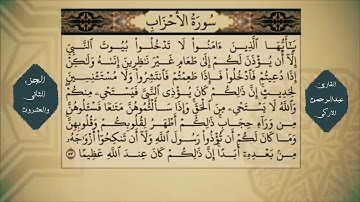 سُورَةُ الأَحْزَابِ
يَٰٓأَيُّهَا ٱلَّذِينَ ءَامَنُوا۟ لَا تَدْخُلُوا۟ بُيُوتَ ٱلنَّبِىِّ
إِلَّآ أَن يُؤْذَنَ لَكُمْ إِلَىٰ طَعَامٍ غَيْرَ نَٰظِرِينَ إِنَىٰهُ وَلَٰكِنْ
إِذَا دُعِيتُمْ فَٱدْخُلُوا۟ فَإِذَا طَعِمْتُمْ فَٱنتَشِرُوا۟ وَلَا مُسْتَـْٔنِسِينَ
لِحَدِيثٍ إِنَّ ذَٰلِكُمْ كَانَ يُؤْذِى ٱلنَّبِىَّ فَيَسْتَحْىِۦ مِنكُمْ
وَٱللَّهُ لَا يَسْتَحْىِۦ مِنَ ٱلْحَقِّ وَإِذَا سَأَلْتُمُوهُنَّ مَتَٰعًا فَسْـَٔلُوهُنَّ
مِن وَرَآءِ حِجَابٍ ذَٰلِكُمْ أَطْهَرُ لِقُلُوبِكُمْ وَقُلُوبِهِنَّ
وَمَا كَانَ لَكُمْ أَن تُؤْذُوا۟ رَسُولَ ٱللَّهِ وَلَآ أَن تَنكِحُوٓا۟ أَزْوَٰجَهُۥ
مِنۢ بَعْدِهِۦٓ أَبَدًا إِنَّ ذَٰلِكُمْ كَانَ عِندَ ٱللَّهِ عَظِيمًا ٥٣
القارئ
عبدالرحمن
الاركي
الجزء
الثاني
والعشرون